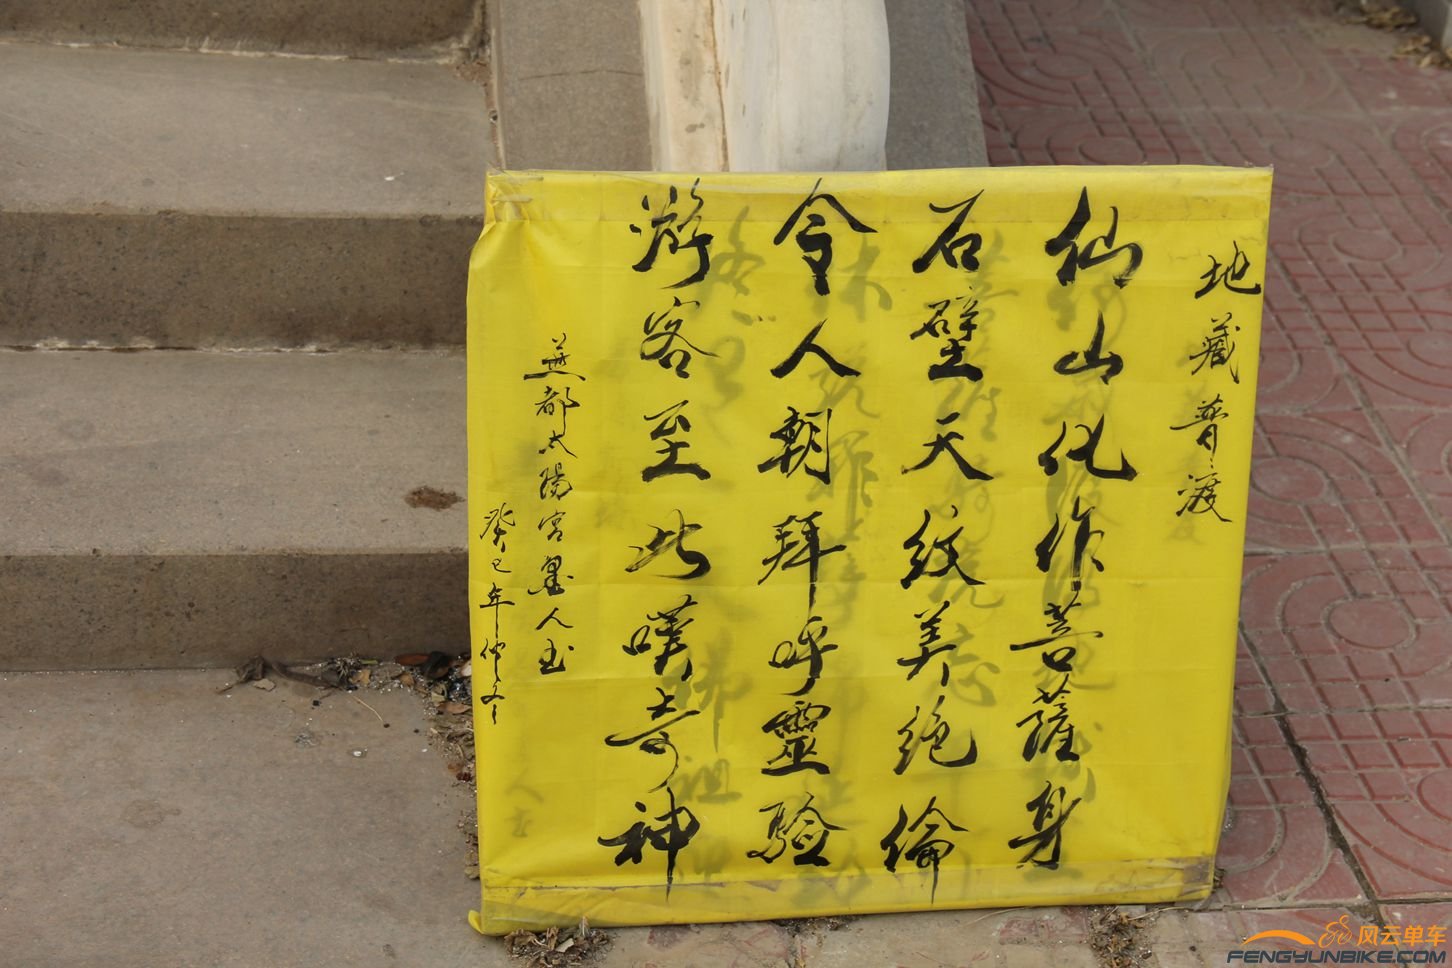 地藏普渡
仙山化作菩薩身
石壁天紋美絶倫
令人朝拜呼靈驗
游客至此嘆奇神
燕都太陽宮墨人书
癸巳年仲冬
风云单车
FENGYUNBIKE.COM